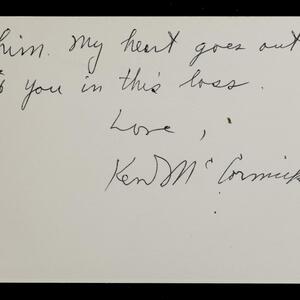 him. My heart goes out
to you in this loss.
Love,
Ken McCormick